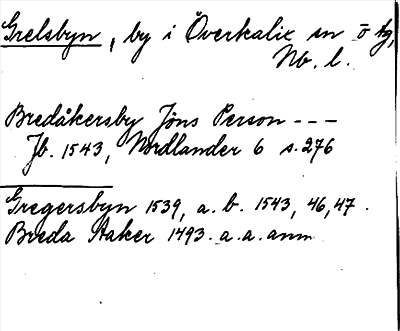 Grelsbyn, by i Överkalix sn ö tg,
Nb. l.
Bredåkersby Jöns Person - - -
Jb. 1543, Nordlander 6 s. 276
Gregersbyn 1539, a. b. 1543, 46, 47.
Breda Aaker 1493. a. a. anm